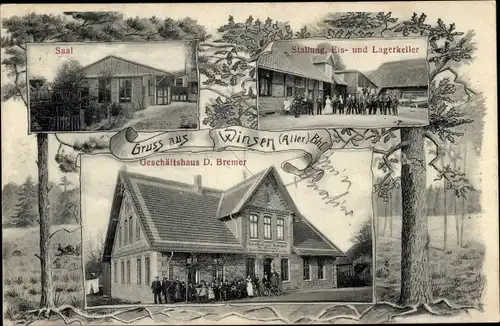 Saal
Stallung, Eis- und Lagerkeller
Gruss aus Winsen (Aller) Bhf.
Geschäftshaus D. Bremer